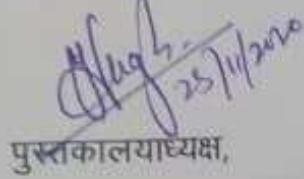 25/11/2020
पुस्तकालयाध्यक्ष,